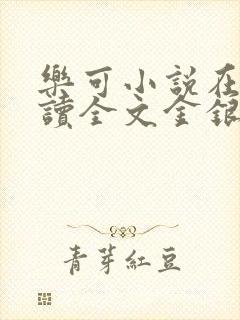 樂可小說在
讀全文金銀
青芽紅豆